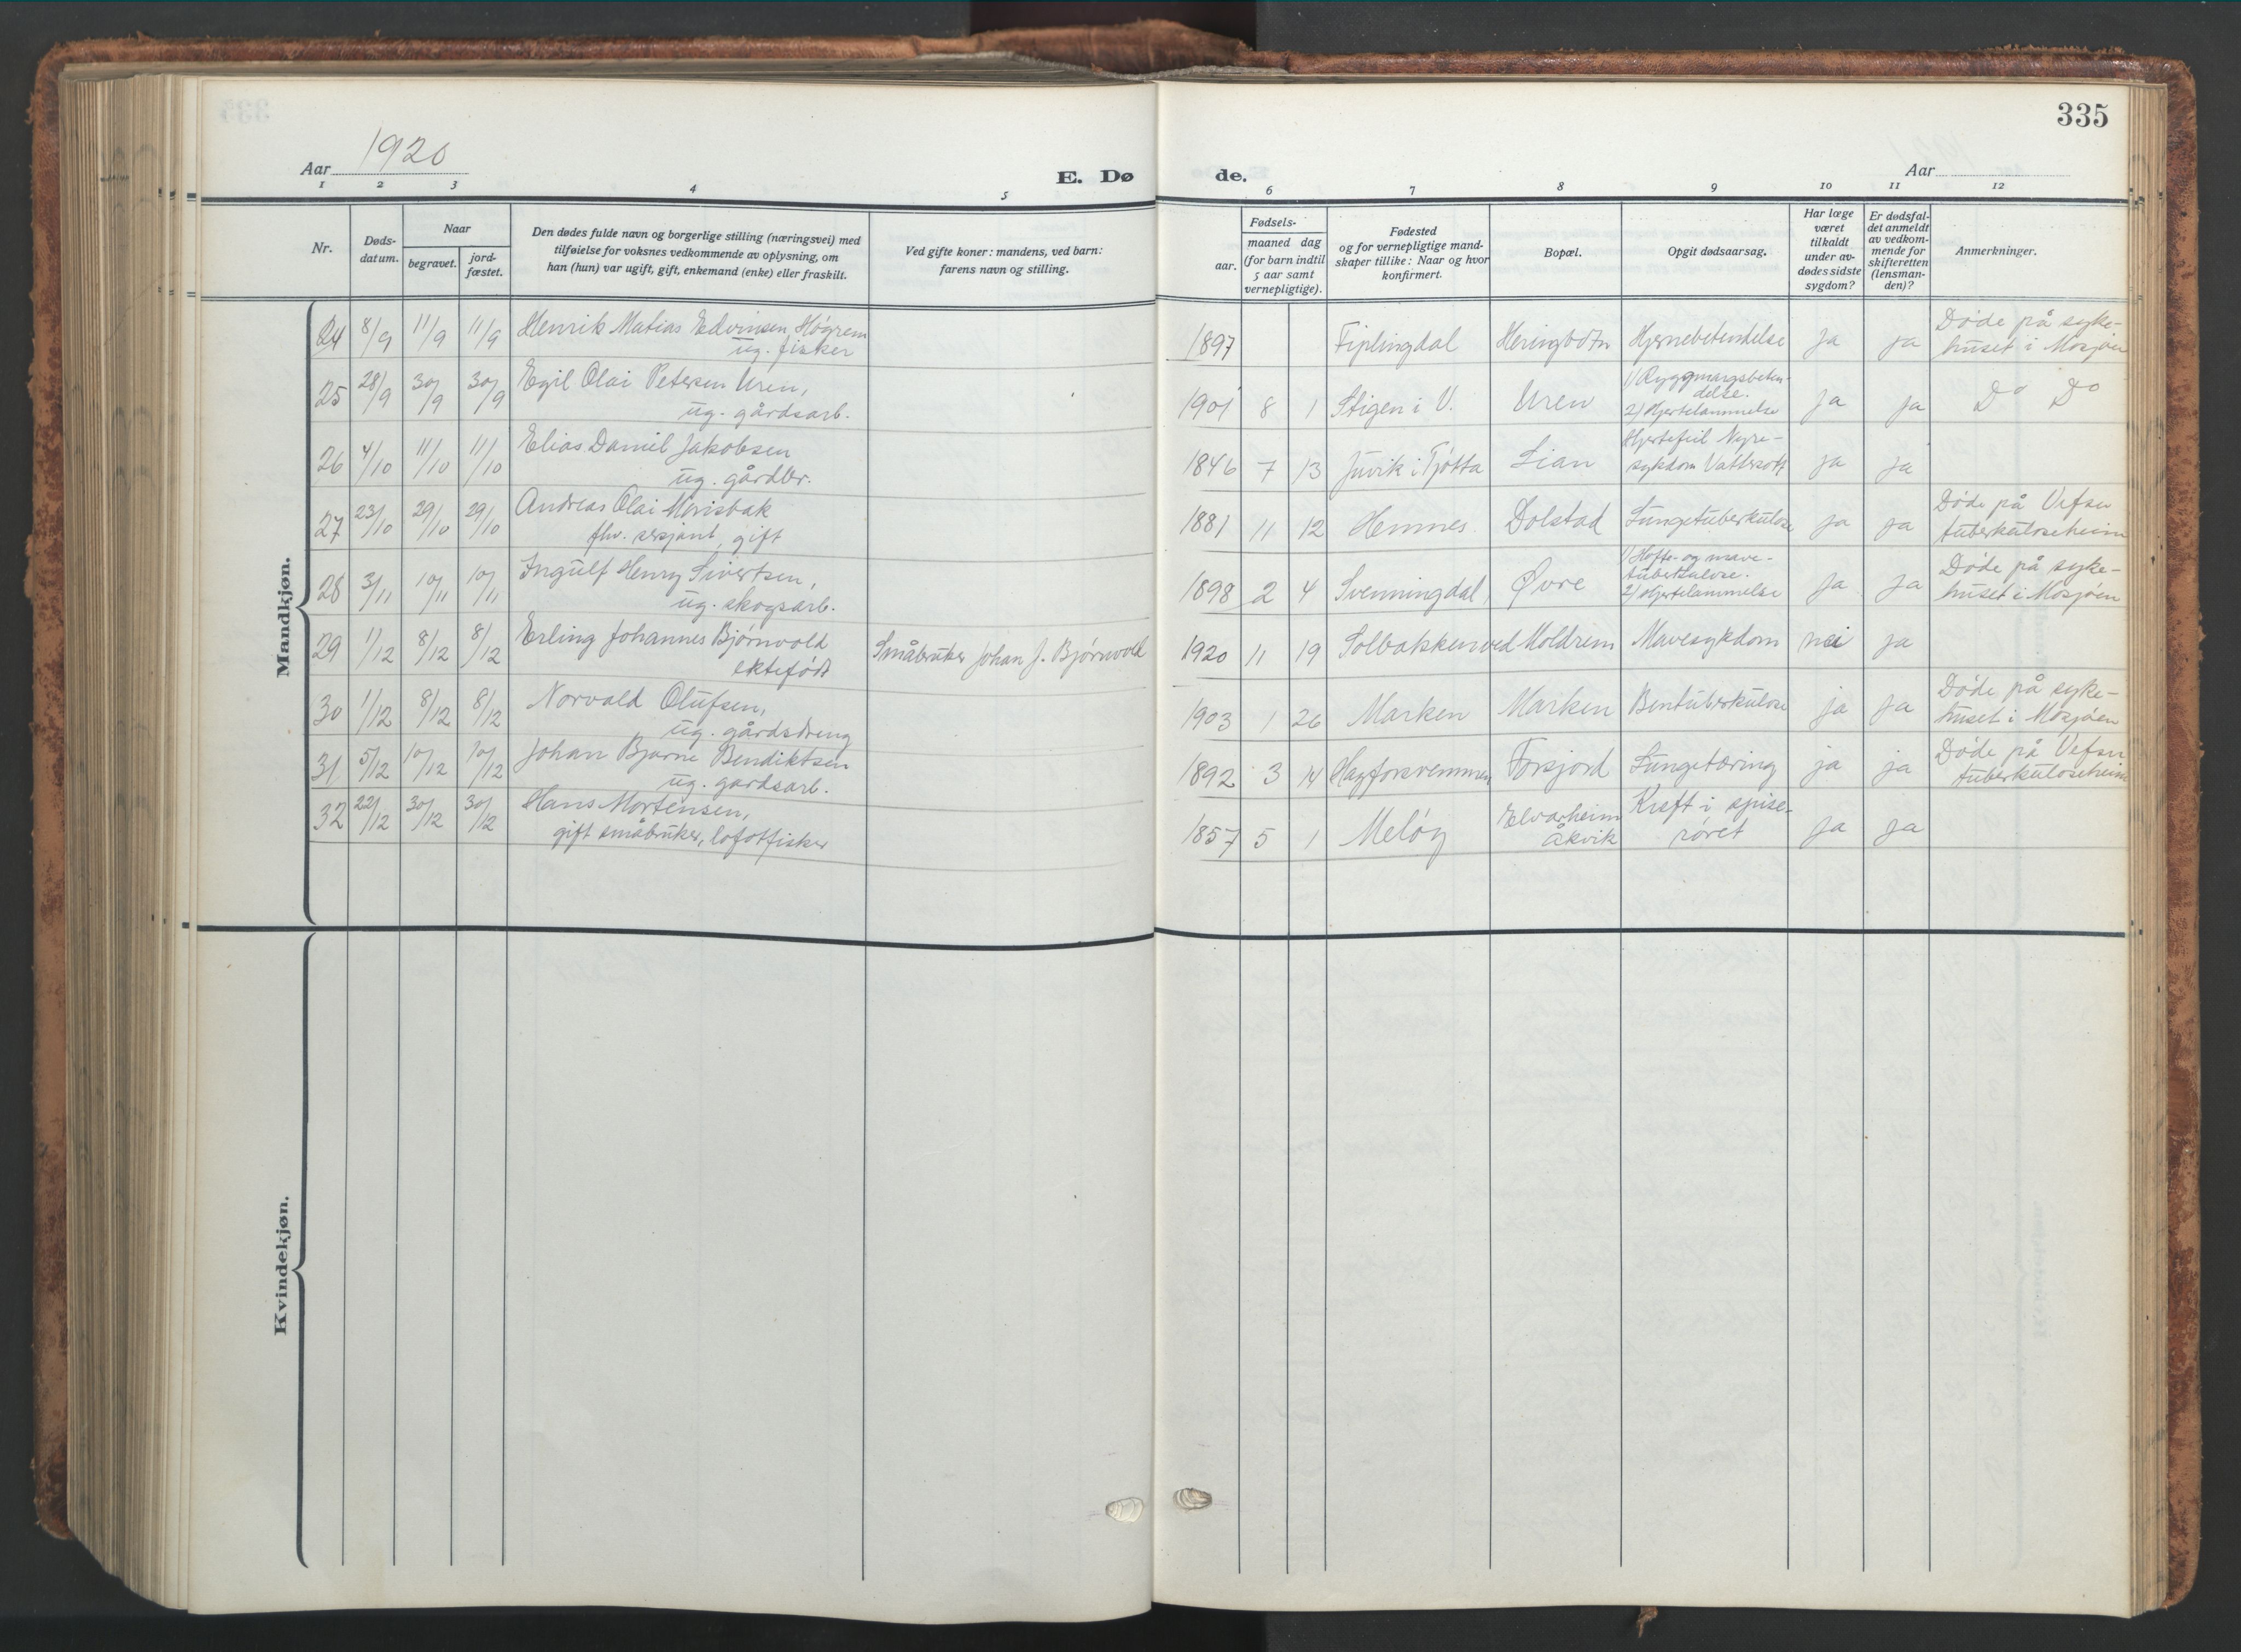 335
Aar 1920
E. Døde.
Aar
1 2 3 4 5 6 7 8 9 10 11 12
Nr.
Døds-
datum.
Naar
begravet.
jord-
fæstet.
Den dødes fulde navn og borgerlige stilling (næringsvei) med
tilføielse for voksnes vedkommende av oplysning, om
han (hun) var ugift, gift, enkemand (enke) eller fraskilt.
Ved gifte koner: mandens, ved barn:
farens navn og stilling.
Fødsels-
aar.
maaned dag
(for barn indtil
5 aar samt
vernepligtige).
Fødested
og for vernepligtige mand-
skaper tillike: Naar og hvor
konfirmert.
Bopæl.
Opgit dødsaarsag.
Har læge
været
tilkaldt
under av-
dødes sidste
sygdom?
Er dødsfal-
det anmeldt
av vedkom-
mende for
skifteretten
(lensman-
den)?
Anmerkninger.
Mandkjøn.
24 8/9 11/9 11/9 Henrik Matias Edvinsen Høgrem
ug. fisker
1897 Fiplingdal Hjernebetendelse ja ja Døde på syke-
huset i Mosjøen
25 28/9 30/9 30/9 Egil Olai Petersen Uren,
ug. gårdsarb.
1901 8 1 Stigen i V. Uren 1) Ryggmargsbeten-
delse.
2) Hjertelammelse ja ja Do Do
26 4/10 11/10 11/10 Elias Daniel Jakobsen
ug. gårdbr.
1846 7 13 Juvik i Tjøtta Lian Hjertefeil Nyre-
sykdom Vattersott ja ja
27 23/10 29/10 29/10 Andreas Olai
fhv. sersjant, gift
1881 11 12 Hemnes. Dolstad Lungetuberkulose ja ja Døde på Vefsn
tuberkuloseheim
28 3/11 10/11 10/11 Ingulf Henry Sivertsen,
ug. skogsarb.
1898 2 4 Svenningdal, Øvre 1) Hofte- og mave-
tuberkulose.
2) Hjertelammelse ja ja Døde på syke-
huset i Mosjøen
29 1/12 8/12 8/12 Erling Johannes Bjørnvold
ektefødt
Småbruker Johan J. Bjørnvold
1920 11 19 Solbakken ved Holdrem Mavesykdom nei ja
30 1/12 8/12 8/12 Norvald Olufsen,
ug. gårdsdreng
1903 1 26 Marken Marken Bentuberkulose ja ja Døde på syke-
huset i Mosjøen
31. 5/12 10/12 10/12 Johan Bjarne Bendiktsen
ug. gardsarb.
1892 3 14 Forsjord Lungetæring ja ja Døde på Vefsn
tuberkuloseheim
32 22/12 30/12 30/12 Hans Mortensen,
gift småbruker, lofotfisker
1857 5 1 Meløy Elvarheim
Åkvik
Kræft i spise-
røret ja ja
Kvindekjøn.